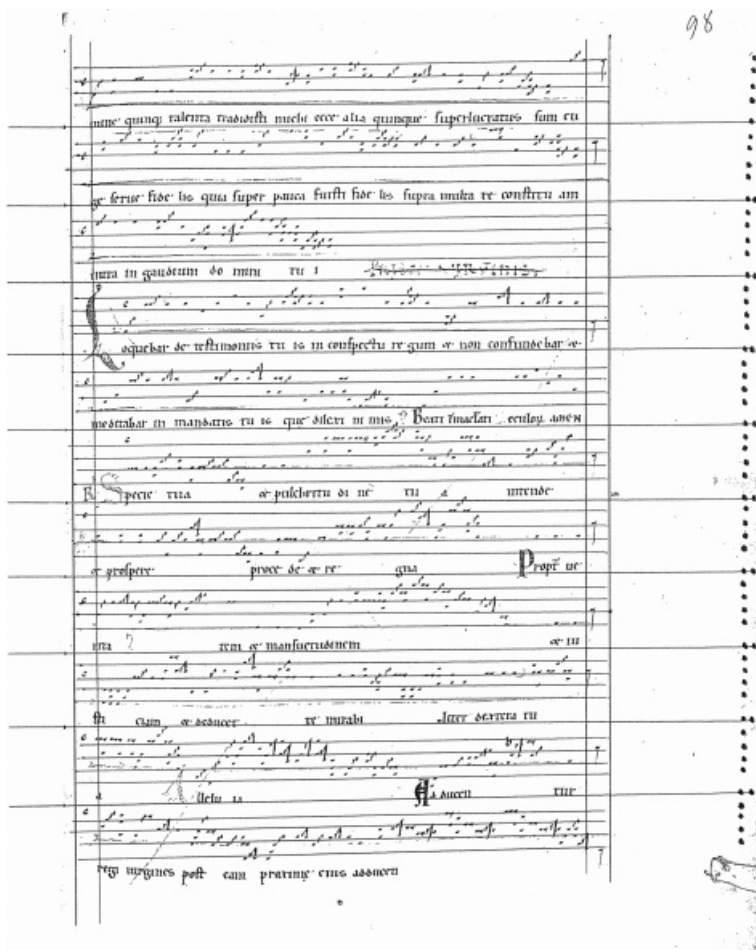 98
mine quinq talenta tradidisti michi ecce alia quinque superlucratus sum eu
ge serue fide lis quia super pauca fuisti fide lis supra multa te constitu am
intra in gaudium do mini tu i
Loquebar de testimoniis tu is in conspectu re gum et non confundebar et
meditabar in mandatis tu is que dilexi ni mis Beati inmaculati AMEN
Specie tua et pulchritu di ne tu a intende
et prospere proce de et re gna Propt ue
rita tem et mansuetudinem et iu
sti ciam et deducet te mirabi liter dextera tu
a Allelu ia Adducen tur
regi uirgines post eam proxime eius adducen